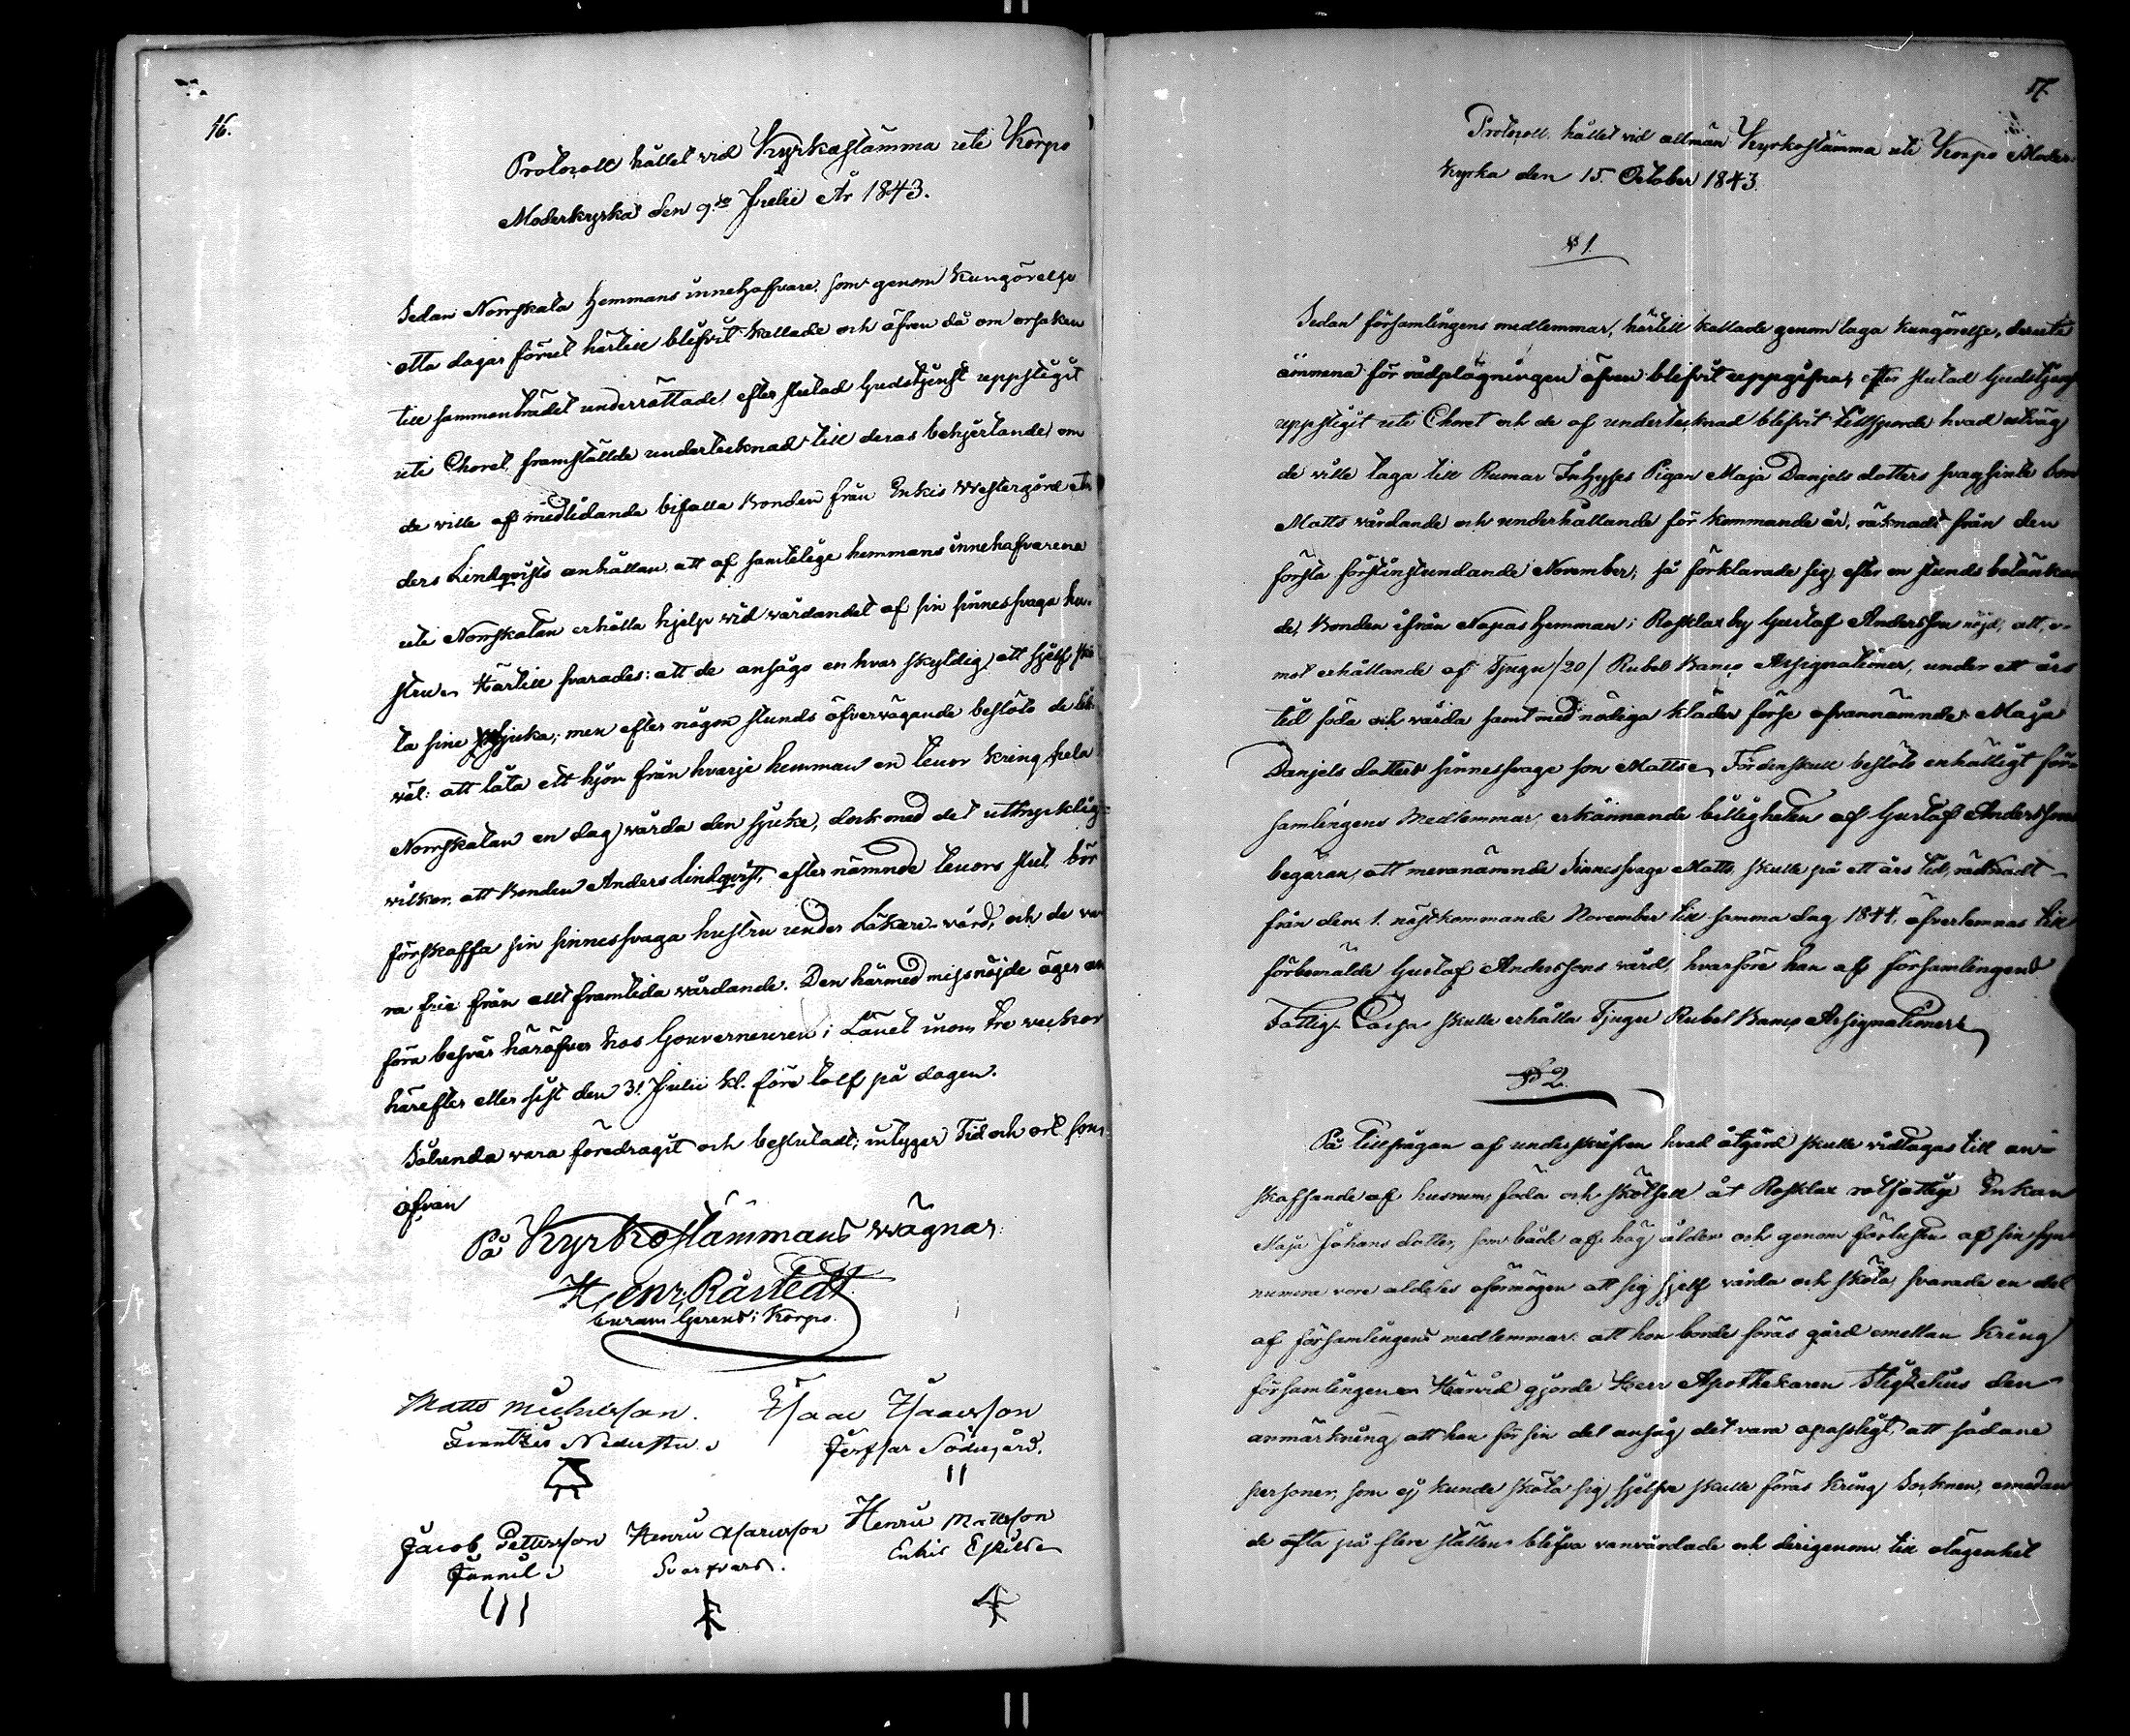 16.
Protocoll hållet vid Kyrkostämma uti Korpo
Moderkyrka den 9:de Julii År 1843.
Sedan Norrskata Hemmans innehafvare, som genom Kungörelse
otta dagar förut härtill blifvit kallade och äfven då om orsaken
till sammanträdet underrättade, efter slutad Gudstjenst uppstigit
uti Choret, framställde undertecknad till deras behjertande, om
de ville af medlidande bifalla Bonden från Enkis Westergård An-
ders Lindqvists anhållan, att af samtelige hemmans innehafvarena
uti Norrskatan erhålla hjelp vid vårdandet af sin sinnessvaga hu-
stru. Härtill svarades: att de ansågo en hvar skyldig att sjelf skö-
ta sine sjuka; men efter någon stunds öfvervägande beslöto de lik-
väl: att låta ett hjon från hvarje hemman en teuor kring hela
Norrskatan en dag vårda den sjuke, dock med det uttryckliga
vilkor, att Bonden Anders Lindqvist, efter nämnde teuors slut, bör
förskaffa sin sinnessvaga hustru under Läkare-vård, och de va-
ra frie från allt framtida vårdande. Den härmed missnöjde äger an-
föra besvär häröfver hos Gouverneuren i Länet inom tre veckor
härefter eller sist den 31 Julii kl. före tolf på dagen.
Sålunda vara föredragit och beslutadt; intygar Tid och ort som
ofvan
På Kyrkostämmans wägnar:
Henr, Råstedt
Curam Gerens i Korpo.
Matts Michelsson. Isaac Isaacsson
Nederstu Södergård.
Jacob Pettersson Henric Henric Mattsson
Enkis
17.
Protocoll, hållet vid allmän Kyrkostämma uti Korpo Moder-
kyrka den 15. October 1843.
§ 1.
Sedan församlingens medlemmar, härtill kallade genom laga kungörelse, deruti
ämnena för rådplägningen äfven blifvit uppgifna, efter slutad Gudstjenst
uppstigit uti Choret och de af undertecknad blifvit tillsporde hvad utväg
de ville taga till Rumar Inhyses Pigan Maja Danjels dotters svagsinte son
Matts vårdande och underhållande för kommande år, räknadt från den
första förstinstundande November; så förklarade sig, efter en stunds betänkan-
de, Bonden ifrån Napas Hemman i Rosklax by Gustaf Andersson nöjd, att, e-
mot erhållande af Tjugu /20/ Rubel Banco Assignationer, under ett års
tid föda och vårda samt med nödiga kläder förse ofvannämnde Maja
Danjels dotters sinnessvage son Matts. Fördenskull beslöto enhälligt för-
samlingens Medlemmar, erkännande billigheten af Gustaf Anderssons
begäran, att meranämnde sinnessvage Matts skulle på ett års tid, räknadt
från den 1. nästkommande November till samma dag 1844, öfverlemnas till
förbemälde Gustaf Anderssons vård, hvarföre han af församlingens
Fattig-Cassa skulle erhålla Tjugu Rubel Banco Assignationer.
§ 2.
På tillfrågan af underskrifven hvad åtgärd skulle vidtagas till an-
skaffande af husrum, föda och skötsel åt Rosklax rotfattige Enkan
Maja Johans dotter, som både af hög ålder och genom förlusten af sin syn
numera vore aldeles oförmögen att sig sjelf vårda och sköta, svarade en del
af församlingens medlemmar: att hon borde föras gård emellan kring
församlingen. Härvid gjorde Herr Apothekaren Stigzelius den
anmärkning, att han för sin del ansåg det vara opassligt, att sådane
personer, som ej kunde sköta sig sjelfve skulle föras kring Socknen, emedan
de ofta på flere ställen blifva vanvårdade och derigenom till olägenhet